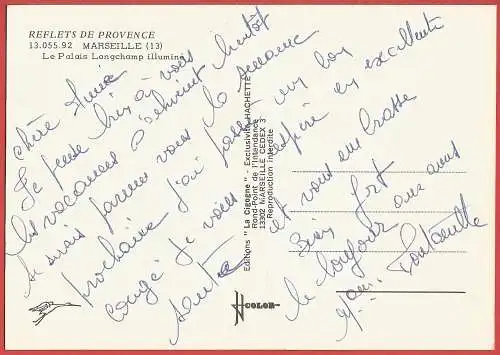 REFLETS DE PROVENCE
13.055.92 MARSEILLE (13)
Le Palais Longchamp illuminé
Chère
Je pense bien à vous
les vacances s'achèvent bientôt
Je serais parmi vous la semaine
prochaine j'ai passé un bon
congé je vous espère en excellente
santé et vous embrasse
Bien fort
le toujours
Editions "La Cigogne" - Exclusivité HACHETTE
Rond-Point de l'Intendance
13302 MARSEILLE CEDEX 3
Reproduction interdite
COLOR